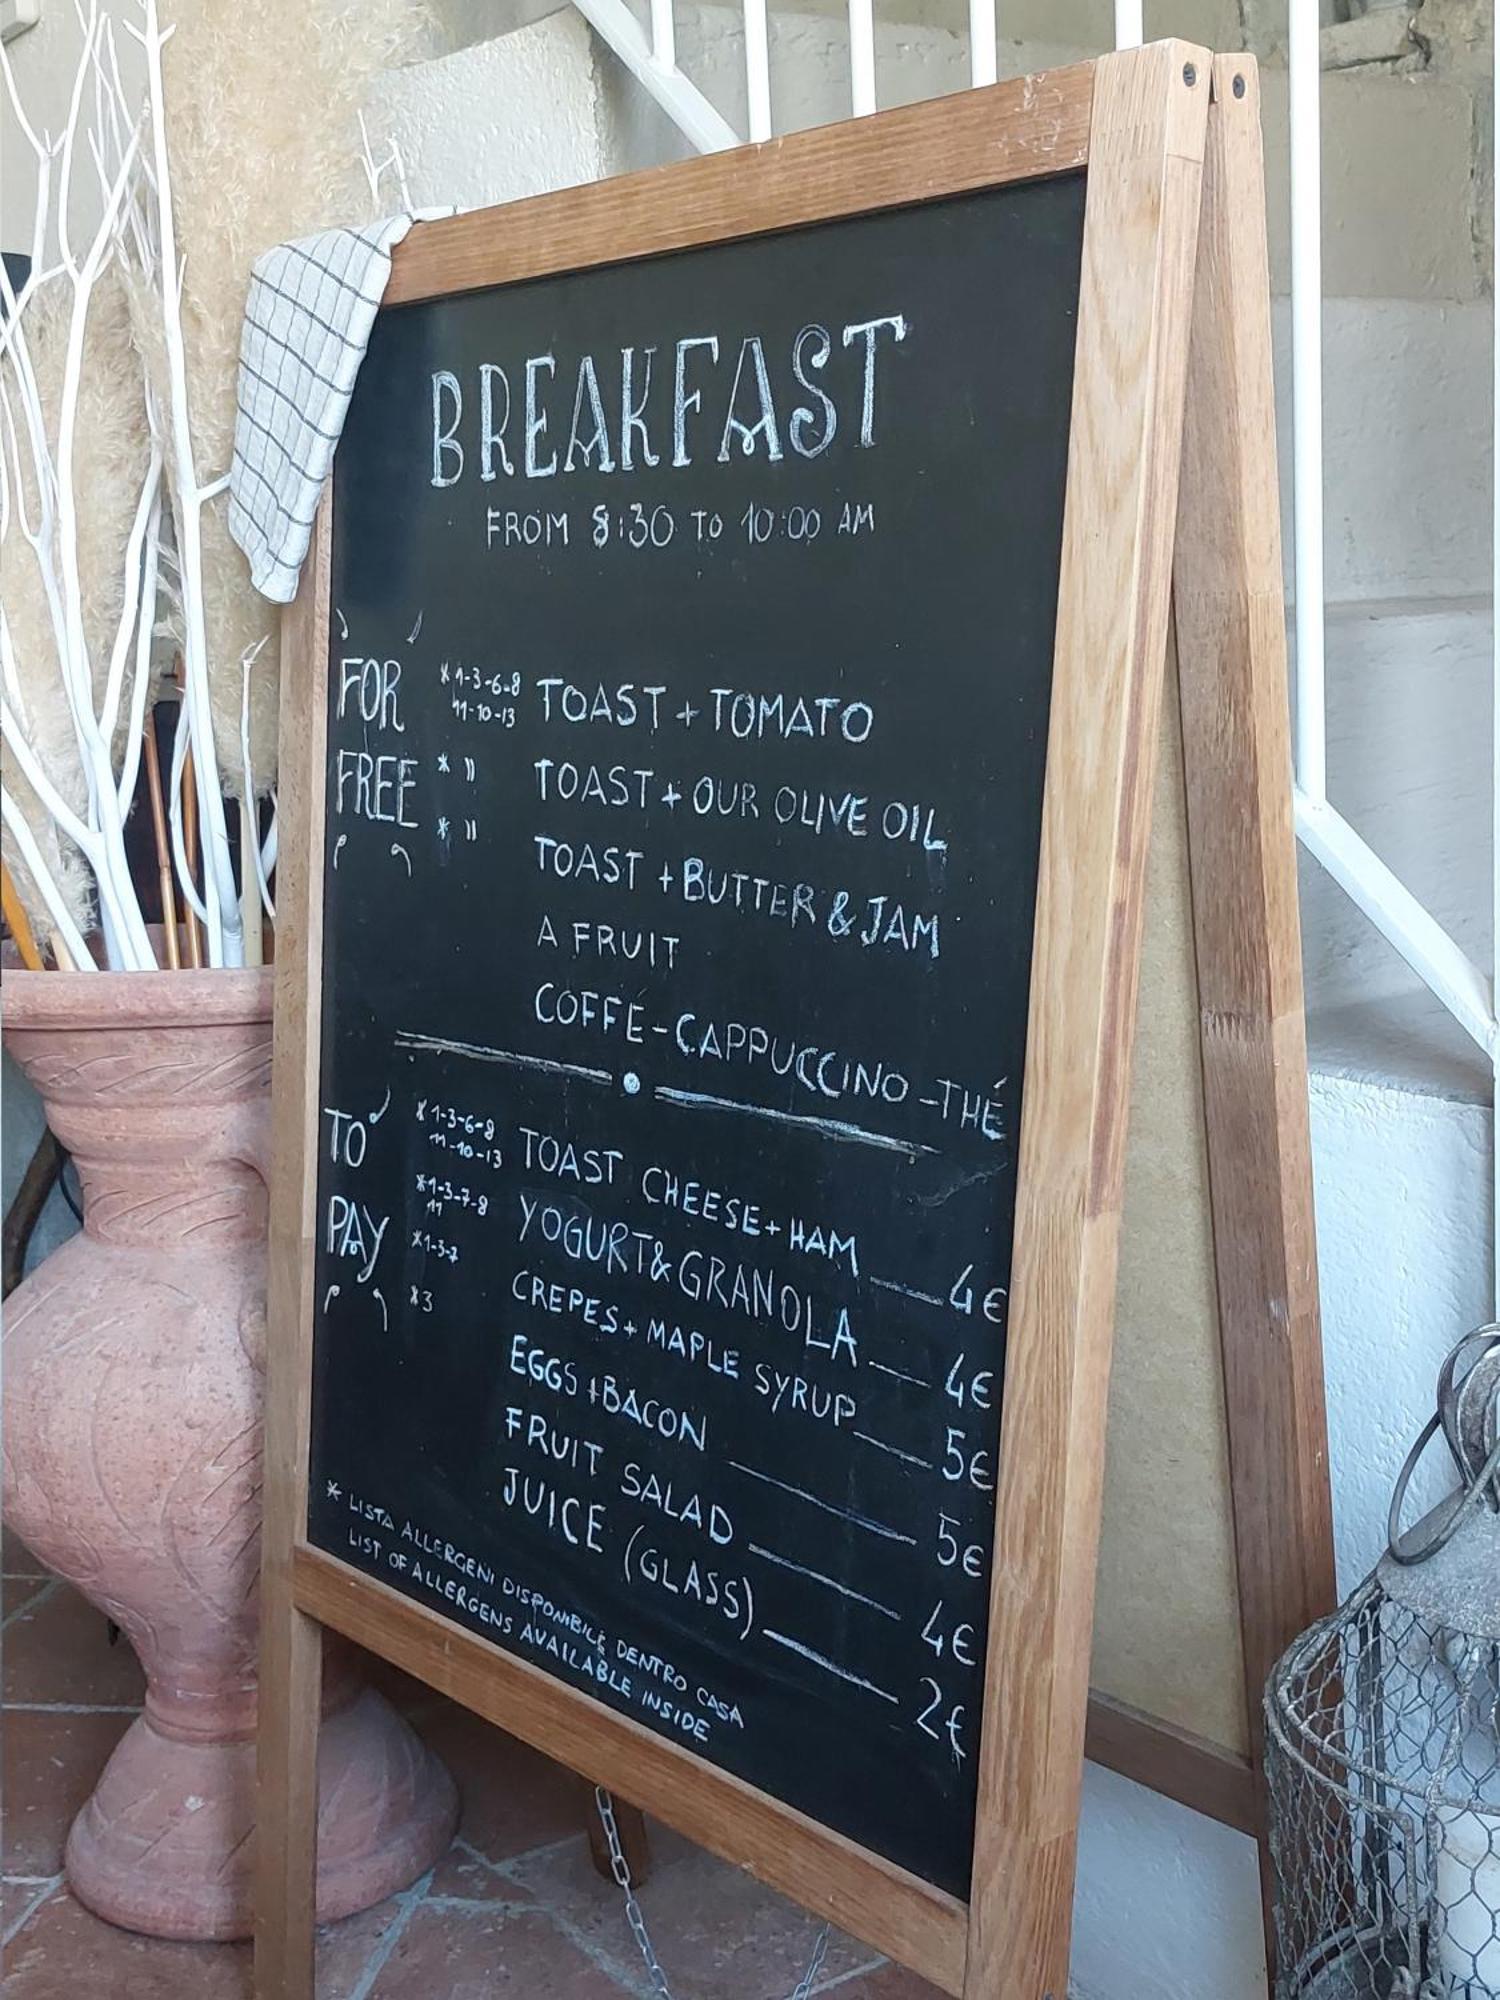 BREAKFAST
FROM 8:30 TO 10:00 AM
FOR
FREE
*1-3-6-8
11-10-13
TOAST + TOMATO
* " TOAST + OUR OLIVE OIL
* " TOAST + BUTTER & JAM
A FRUIT
COFFE - CAPPUCCINO - THÉ
TO
PAY
*1-3-6-8
11-10-13
TOAST CHEESE + HAM 4€
*1-3-7-8
11
YOGURT & GRANOLA 4€
*1-3-7 CREPES + MAPLE SYRUP 5€
*3 EGGS + BACON 5€
FRUIT SALAD 4€
JUICE (GLASS) 2€
* LISTA ALLERGENI DISPONIBILE DENTRO CASA
LIST OF ALLERGENS AVAILABLE INSIDE